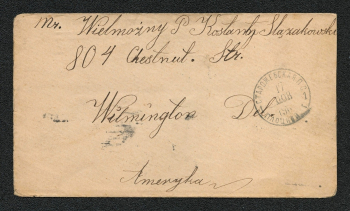 Mr. Wielmożny P Kostanty Slązakowski
804 Chestnut. Str.
Wilmington Del.
Ameryka
17